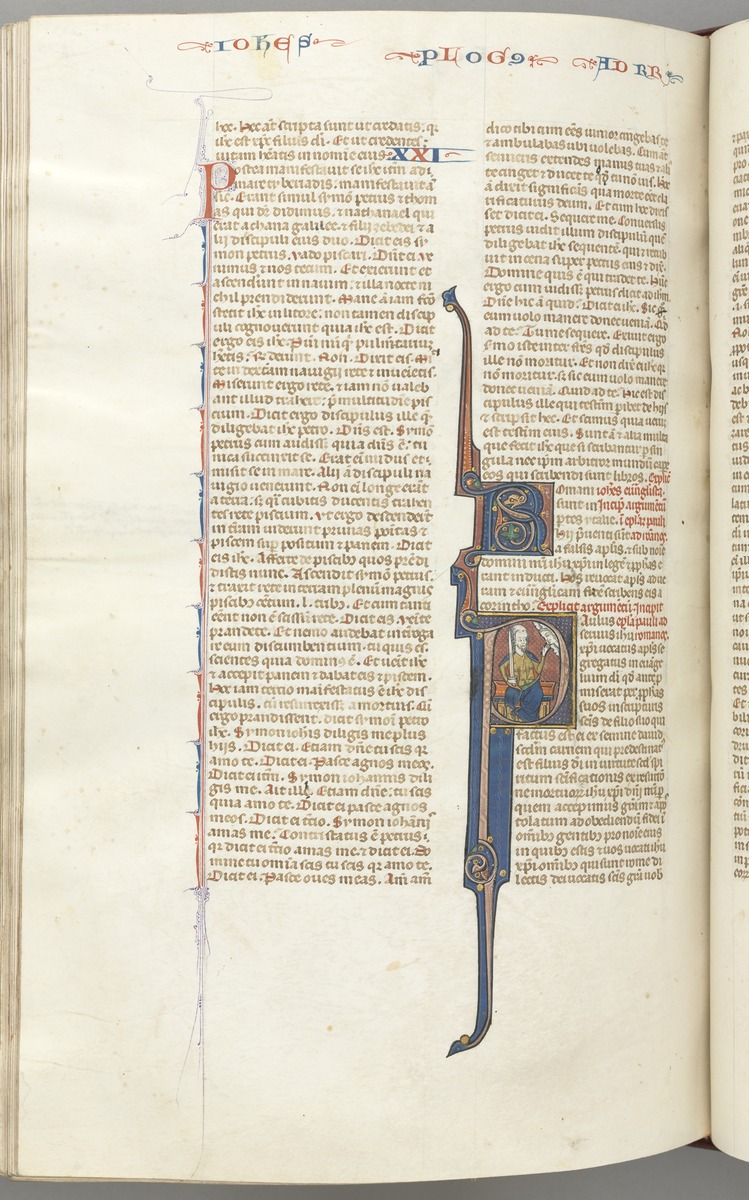 IOHES PLOG9 AD RR
hec. hec at scripta sunt ut credatis. qr
ihc est xpc filius di. Et ut credentes
vitam heatis in nomine eius. XXI
Postea manifestavit se ihc itm ad
mare tyberiadis. manifestavit at
sic. Erant simul symon petrus et thom
as qui dr didimus. et nathanael qui
erat a chana galilee. et filii zebedei et a
lii discipuli eius duo. Dicit eis sy
mon petrus. vado piscari. Dnt ei. ve
nimus et nos tecum. Et exierunt et
ascendunt in navim. et illa nocte ni
chil prendiderunt. Mane at iam fco
stetit ihc in litore. non tamen discip
uli cognoverunt quia ihc est. Dicit
ergo eis ihc. Pueri nuqd pulmtarium
hetis. Rnderunt. Non. Dicit eis. Mi
te in dextam navigii rete et invenietis.
Miserunt ergo rete. et iam non valeb
ant illud trahere. p multitudie pis
cium. Dicit ergo discipulus ille que
diligebat ihc petro. Dns est. Symon
petrus cum audisset quia dns e. tu
nica succinxit se. Erat ei nudus et
misit se in mare. Alii at discipuli na
vigio venerunt. Non ei longe erant
a terra. sz qsi cubitis ducentis trahen
tes rete piscium. Vt ergo descenderunt
in tram viderunt prunas positas et
piscem sup positum et panem. Dicit
eis ihc. Afferte de piscibz quos prendi
distis nunc. Ascendit symon petrus.
et traxit rete in terram plenum magnis
piscibz centum. l. tribz. Et cum tanti
cent non e scissum rete. Dicit eis. venite
prandete. Et nemo audebat interroga
re eum discumbentium. tu quis es.
scientes quia dominus e. Et venit ihc
et accepit panem et dabat eis et piscem.
hec iam tercio manifestatus e ihc dis
cipulis. cu resurrexisset a mortuis. Cu
ergo prandissent. dicit symoi petro
ihc. Symon iohis diligis me plus
hiis. Dicit ei. Etiam dne tu scis qr
amo te. Dicit ei. Pasce agnos meos.
Dicit ei itm. Symon iohannis dili
gis me. Ait illi. Etiam dne. tu scis
quia amo te. Dicit ei pasce agnos
meos. Dicit ei tcio. Symon iohannis
amas me. Contristatus e petrus.
qr dicit ei tcio amas me. et dicit ei. Do
mine tu omnia scis tu scis qr amo te.
Dicit ei. Pasce oves meas. Am am
dico tibi cum ees iunior cingebas te
et ambulabas ubi volebas. Cum at
senueris extendes manus tuas et ali
te cinget et ducet te quo tu non vis. hoc
at dixit significans qua morte eet cla
rificaturus deum. Et cum hoc dixis
set dicit ei. Sequere me. Conversus
petrus vidit illum discipulum que
diligebat ihc sequente. qui et recub
uit in cena super pectus eius et dix.
Domine quis e qui tradet te. hunc
ergo cum vidisset petrus dicit ad ihm.
Dne hic at quid. Dicit ei ihc. Sic
eum volo manere donec veniam. Qid
ad te. Tu me sequere. Exivit ergo
smo iste inter fres qd discipulus
ille non moritur. Et non dix ei ihc qr
non moritur. sz sic eum volo manere
donec veniam. Quid ad te. hic est dis
cipulus ille qui testim phibet de hiis
et scripsit hec. Et scimus quia verum
est testim eius. Sunt at et alia multa
que fecit ihc que si scribantur p sin
gula nec ipm arbitror mundum cape
eos qui scribendi sunt libros. Explic
Romani iohes euuglista.
sunt in Incip argumentu
ptes ytalie. i epla pauli
hii pventi sunt ad romanos.
a falsis aplis. et sub noie
domini nri ihu xpi in lege et pphas e
rant inducti. hos revocat apls ad ve
ram et euuglicam fide scribens eis a
corintho. Explicit argumentu. Incipit
Paulus epla pauli ad
servus ihu romanos.
xpi vocatus apls se
gregatus in euuage
lium di qd antep
miserat per pphas
suos in scripturis
scis de filio suo qui
factus est ei ex semine david
scdm carnem qui predestinat
est filius di in virtute scd spi
ritum scificationis ex resurrectio
ne mortuorz ihu xpi dni nri. p
quem accepimus gram et ap
tolatum ad obediendum fidei i
omibz gentibz pro noie eius
in quibz estis et vos vocati ihu
xpi. omibz qui sunt rome di
lectis dei vocatis scis gra vob